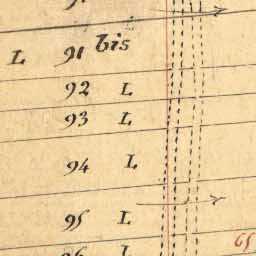 L 91 bis
92 L
93 L
94 L
95 L
L
65